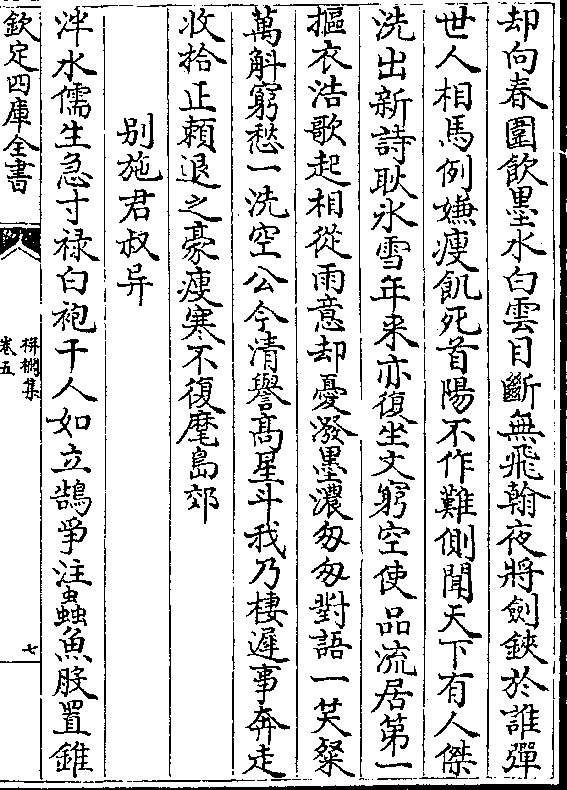 却向春圍飲墨水白雲目斷無飛翰夜將劍鋏於誰彈
世人相馬例嫌瘦飢死首陽不作難側聞天下有人傑
洗出新詩耿氷雪年来亦復坐文窮空使品流居第一
摳衣浩歌起相從雨意却憂潑墨濃匆匆對語一笑粲
萬斛窮愁一洗空公今清譽髙星斗我乃棲遲事奔走
收拾正頼退之豪瘦寒不復麾島郊
别施君叔异
泮水儒生急寸禄白袍千人如立鵠爭注蟲魚股置錐
欽定四庫全書
栟櫚集
卷五
七